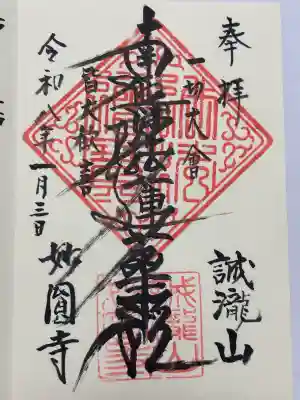 奉拝
誠瀧山
一切大會
南無妙法蓮華経
皆大歓喜
妙圓寺
令和八年一月三日